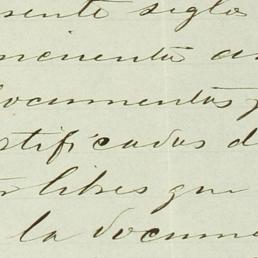 sente siglo
ncuenta a
documentos
rtificados d
libres que
la docume